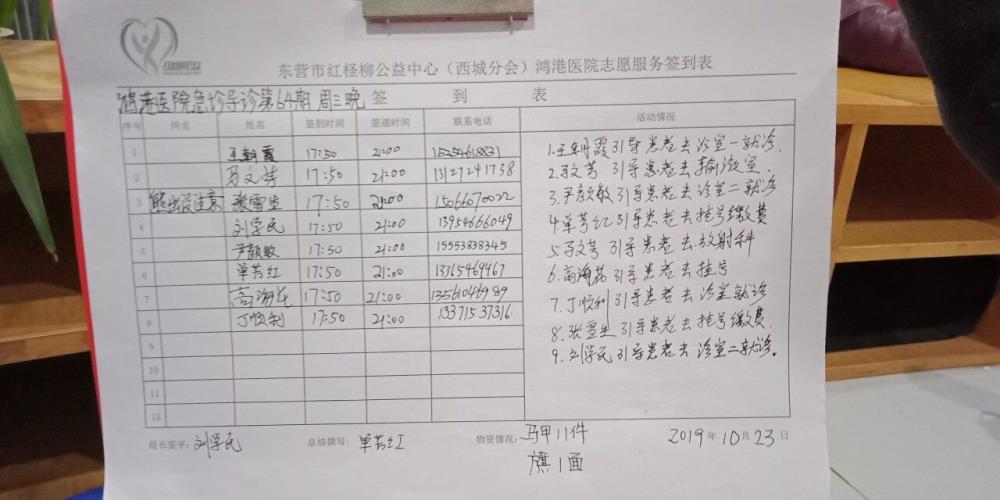 东营市红柽柳公益中心（西城分会）鸿港医院志愿服务签到表
鸿港医院急诊导诊第64期 周三晚 签 到 表
序号 网名 姓名 签到时间 签退时间 联系电话 活动情况
1 王朝霞 17:50 21:00
2 孜文芳 17:50 21:00 13127241738
3 熊出没注意 张雪生 17:50 21:00 15066070022
4 刘学民 17:50 21:00 13954666049
5 尹颜敏 17:50 21:00 15553838345
6 单芳红 17:50 21:00 13165469467
7 17:50 21:00 13561046989
8 丁顺利 17:50 21:00 13371537316
9
10
11
12
1.王朝霞引导患者去诊室一就诊.
2. 引导患者去输液室.
3.尹颜敏引导患者去诊室二就诊
4.单芳红引导患者去挂号缴费
5. 引导患者去放射科
6. 引导患者去挂号
7.丁顺利引导患者去诊室就诊
8.张雪生引导患者去挂号缴费.
9.刘学民引导患者去诊室二就诊.
组长签字: 刘学民 总结撰写: 单芳红 物资情况: 马甲11件 2019年10月23日
旗1面